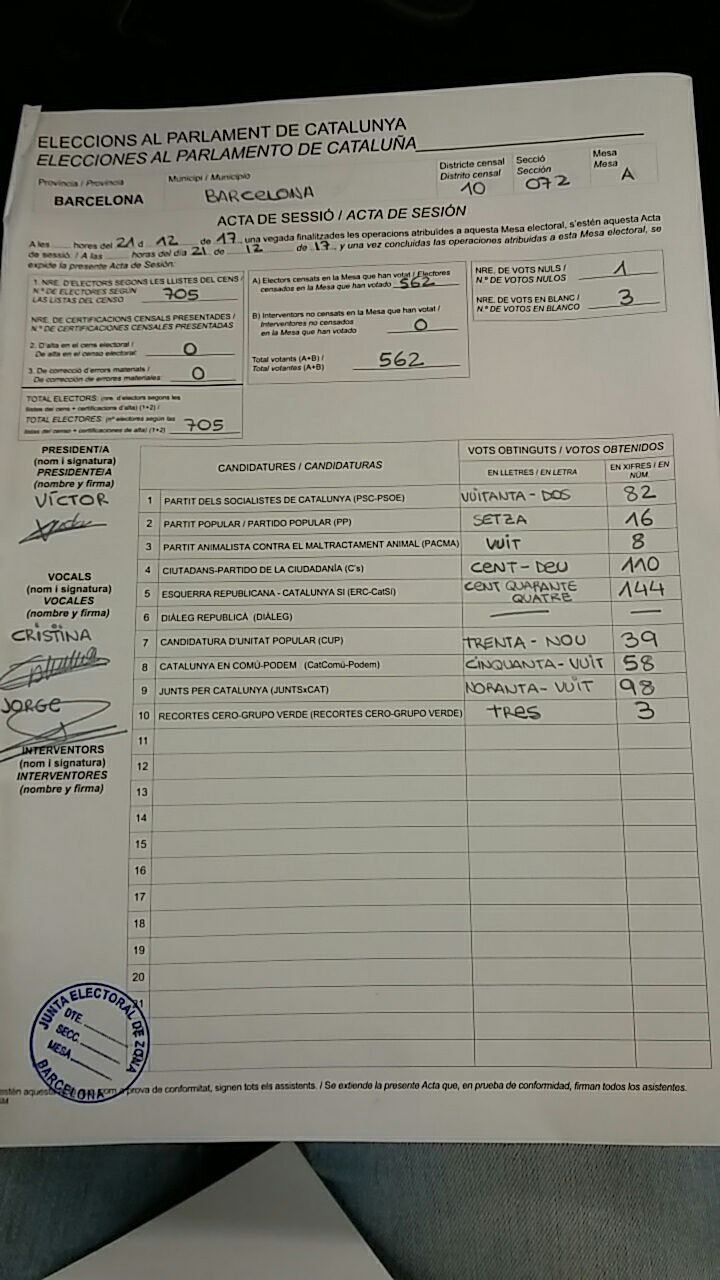 ELECCIONS AL PARLAMENT DE CATALUNYA
ELECCIONES AL PARLAMENTO DE CATALUÑA
Província / Provincia
BARCELONA
Municipi / Municipio
BARCELONA
Districte censal
Distrito censal
10
Secció
Sección
072
Mesa
Mesa
A
ACTA DE SESSIÓ / ACTA DE SESIÓN
A les hores del 21 d 12 de 17, una vegada finalitzades les operacions atribuïdes a aquesta Mesa electoral, s'estén aquesta Acta
de sessió. / A las horas del día 21 de 12 de 17, y una vez concluidas las operaciones atribuidas a esta Mesa electoral, se
expide la presente Acta de Sesión:
1. NRE. D'ELECTORS SEGONS LES LLISTES DEL CENS /
N.º DE ELECTORES SEGÚN
LAS LISTAS DEL CENSO 705
NRE. DE CERTIFICACIONS CENSALS PRESENTADES /
N.º DE CERTIFICACIONES CENSALES PRESENTADAS
2. D'alta en el cens electoral /
De alta en el censo electoral: 0
3. De correcció d'errors materials /
De corrección de errores materiales: 0
TOTAL ELECTORS: (nre. d'electors segons les
llistes del cens + certificacions d'alta) (1+2) /
TOTAL ELECTORES: (nº electores según las
listas del censo + certificaciones de alta) (1+2) 705
A) Electors censats en la Mesa que han votat / Electores
censados en la Mesa que han votado 562
B) Interventors no censats en la Mesa que han votat /
Interventores no censados
en la Mesa que han votado 0
Total votants (A+B) /
Total votantes (A+B) 562
NRE. DE VOTS NULS /
N.º DE VOTOS NULOS 1
NRE. DE VOTS EN BLANC /
N.º DE VOTOS EN BLANCO 3
PRESIDENT/A
(nom i signatura)
PRESIDENTE/A
(nombre y firma)
VÍCTOR
VOCALS
(nom i signatura)
VOCALES
(nombre y firma)
CRISTINA
JORGE
INTERVENTORS
(nom i signatura)
INTERVENTORES
(nombre y firma)
CANDIDATURES / CANDIDATURAS
VOTS OBTINGUTS / VOTOS OBTENIDOS
EN LLETRES / EN LETRA
EN XIFRES / EN NÚM.
1 PARTIT DELS SOCIALISTES DE CATALUNYA (PSC-PSOE) VUITANTA-DOS 82
2 PARTIT POPULAR / PARTIDO POPULAR (PP) SETZA 16
3 PARTIT ANIMALISTA CONTRA EL MALTRACTAMENT ANIMAL (PACMA) VUIT 8
4 CIUTADANS-PARTIDO DE LA CIUDADANÍA (C's) CENT-DEU 110
5 ESQUERRA REPUBLICANA - CATALUNYA SI (ERC-CatSí) CENT QUARANTE QUATRE 144
6 DIÀLEG REPUBLICÀ (DIÀLEG) — —
7 CANDIDATURA D'UNITAT POPULAR (CUP) TRENTA-NOU 39
8 CATALUNYA EN COMÚ-PODEM (CatComú-Podem) CINQUANTA-VUIT 58
9 JUNTS PER CATALUNYA (JUNTSxCAT) NORANTA-VUIT 98
10 RECORTES CERO-GRUPO VERDE (RECORTES CERO-GRUPO VERDE) TRES 3
11
12
13
14
15
16
17
18
19
20
21
JUNTA ELECTORAL DE ZONA
DTE.
SECC.
MESA
BARCELONA
prova de conformitat, signen tots els assistents. / Se extiende la presente Acta que, en prueba de conformidad, firman todos los asistentes.